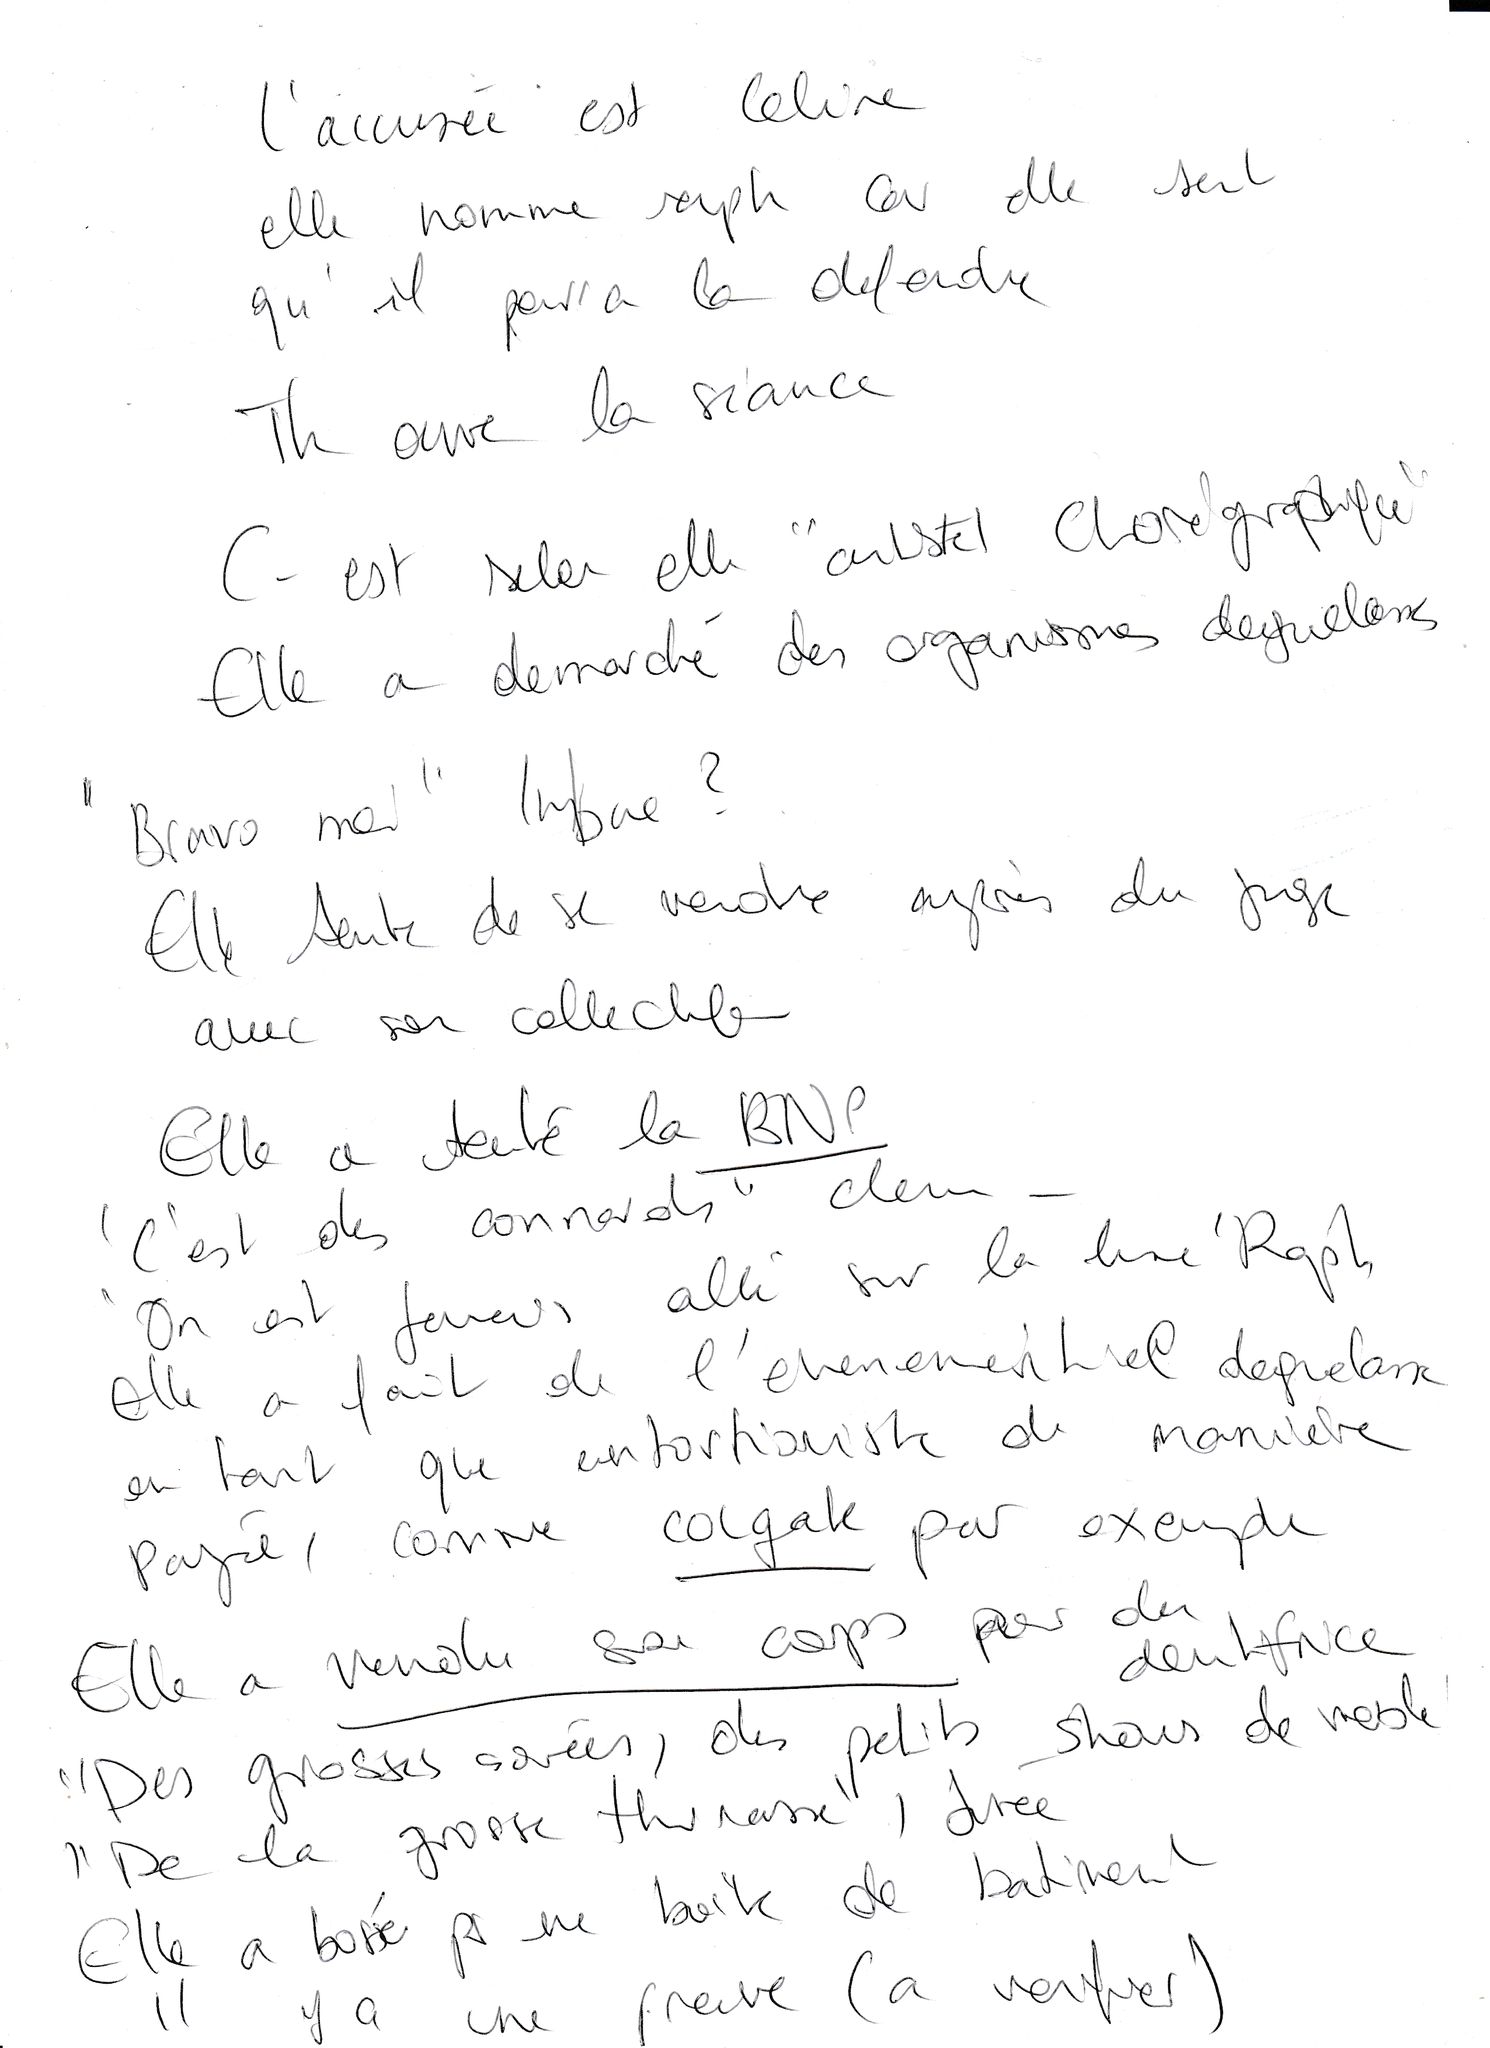 l'accusée est Celine
elle nomme raph car elle sent
qu'il pourra la defendre
Th ouvre la séance
C- est selon elle "artiste chorégraphique"
Elle a demarché des organismes degueulasses
"Bravo moi" Infame ?
Elle tente de se vendre auprès du juge
avec son collectif
Elle a tenté la BNP
"C'est des connards" clem -
"On est jamais allé sur la lune" Raph
elle a fait de l'evenementiel deguelasse
en tant que contortioniste de manière
payée, comme colgate par exemple
Elle a vendu son corps pour du
dentifrice
"Des grosses soirées, des petits shows de merde"
"De la grosse thunasse",
Elle a bossé pr une boite de batiment
Il y a une preuve (a verifier)